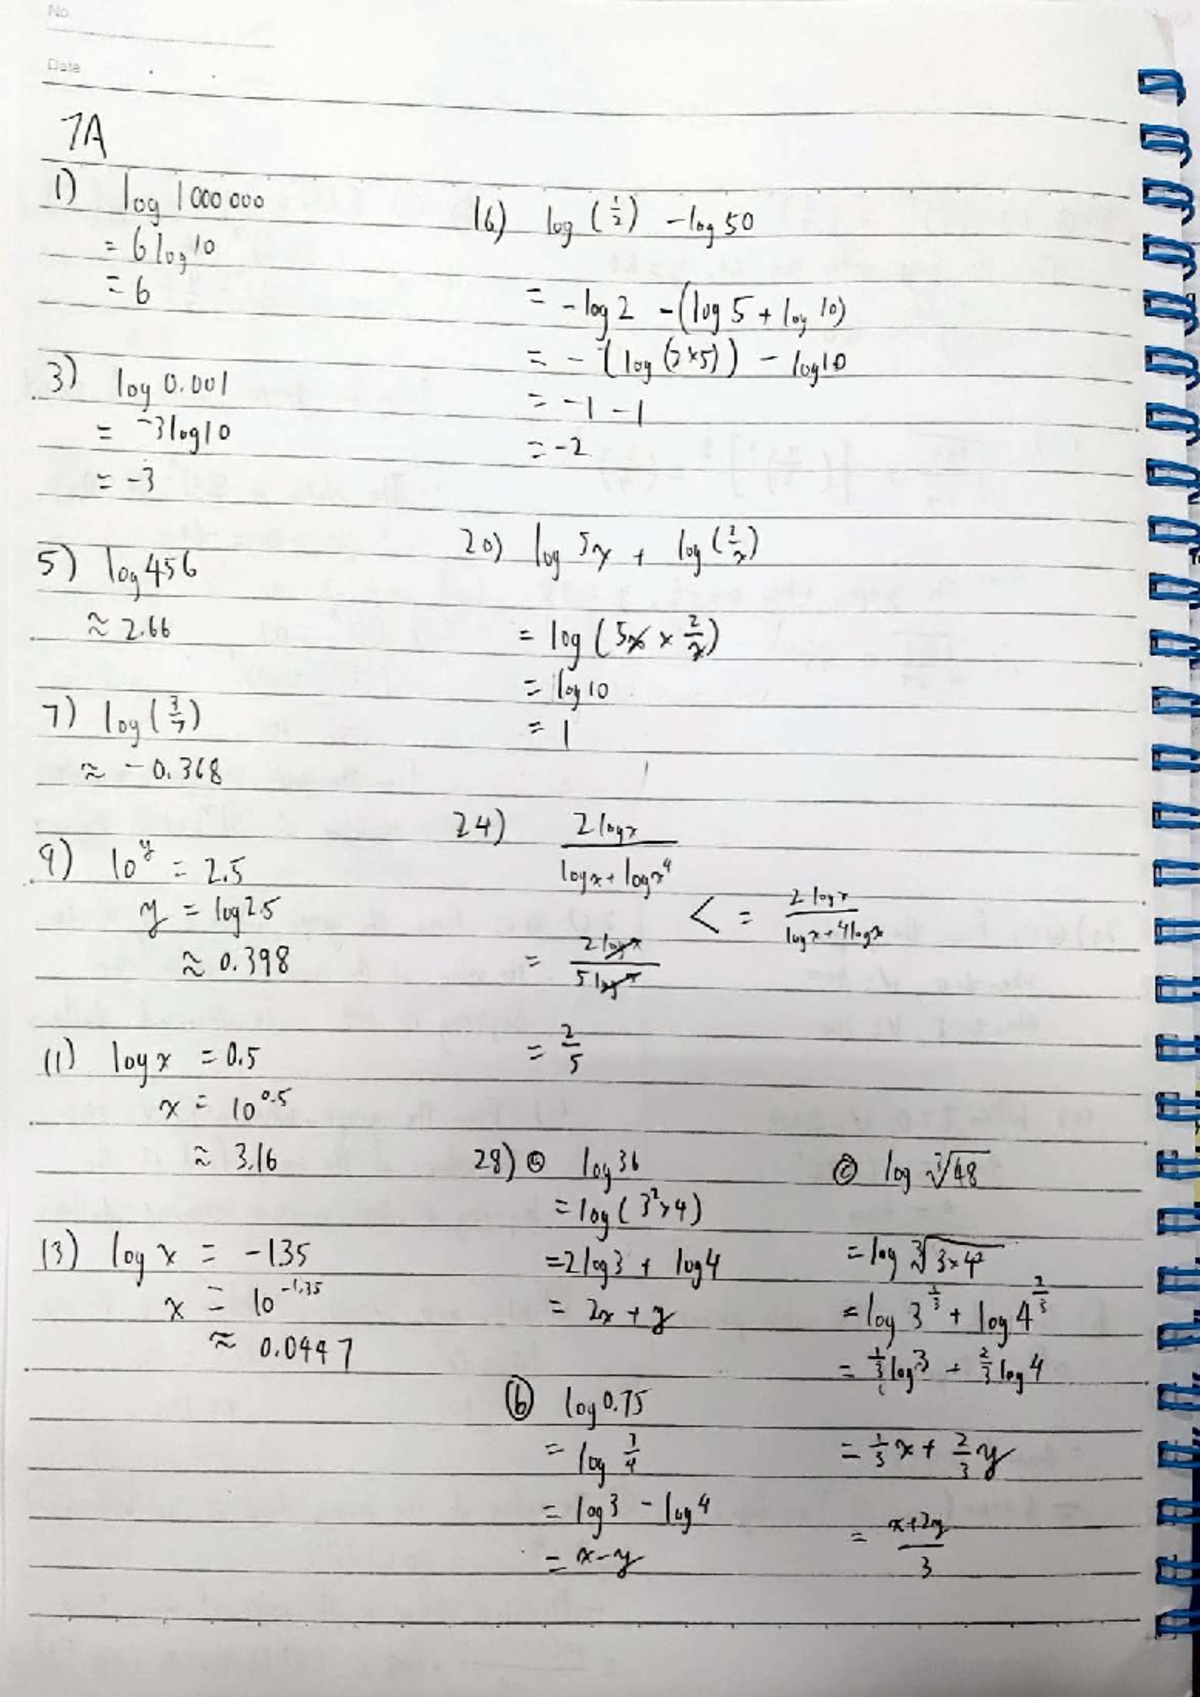 No.
Date
7A
1) log 1000000
= 6log10
= 6
3) log 0.001
= -3log10
= -3
5) log 456
≈ 2.66
7) log(3/7)
≈ -0.368
9) 10^y = 2.5
y = log2.5
≈ 0.398
11) log x = 0.5
x = 10^0.5
≈ 3.16
13) log x = -1.35
x = 10^-1.35
≈ 0.0447
16) log(1/2) - log50
= -log2 - (log5 + log10)
= -(log(2×5)) - log10
= -1 - 1
= -2
20) log 5x + log(2/x)
= log(5x × 2/x)
= log10
= 1
24) 2logx / logx + logx^4
< = 2logx / logx + 4logx
= 2logx / 5logx
= 2/5
28) ⓐ log36
= log(3²×4)
= 2log3 + log4
= 2x + y
ⓑ log0.75
= log 3/4
= log3 - log4
= x - y
ⓒ log ∛48
= log ∛3×4²
= log3^1/3 + log4^2/3
= 1/3 log3 + 2/3 log4
= 1/3 x + 2/3 y
= x+2y / 3